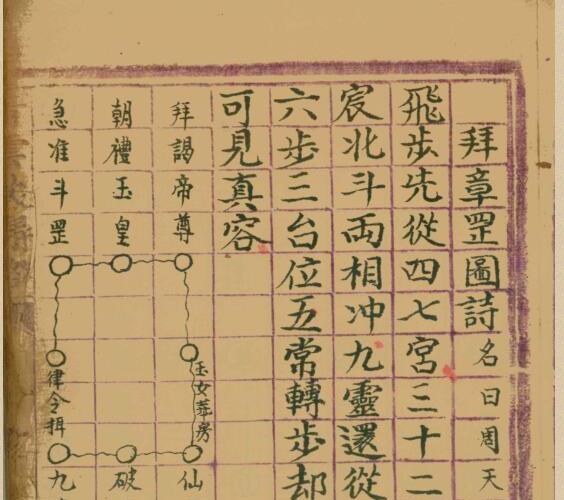 拜章罡圖詩名曰周天
飛步先從四七宮三十二
宸北斗兩相冲九靈還從
六步三台位五常轉步却
可見真容
拜謁帝尊
玉女葬房
仙
朝禮玉皇
破
急准斗罡
律令揖
九